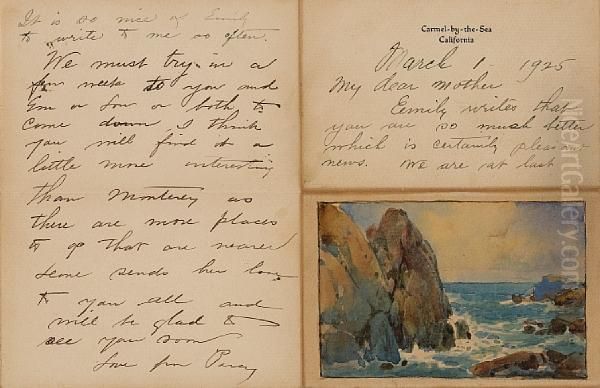 Carmel-by-the-Sea
California
March 1 - 1925
My dear Mother
Eemily writes that
you are so much better
which is certainly pleasant
news. We are at last
It is so nice of Emily
to write to me so often.
We must try in a
few week to you and
Em or Lou or both to
come down, I think
you will find it a
little more interesting
than Monterey as
there are more places
to go that are nearer
sends her love
to you all and
will be glad to
see you soon
Love from Percy
NiceArtGallery.com